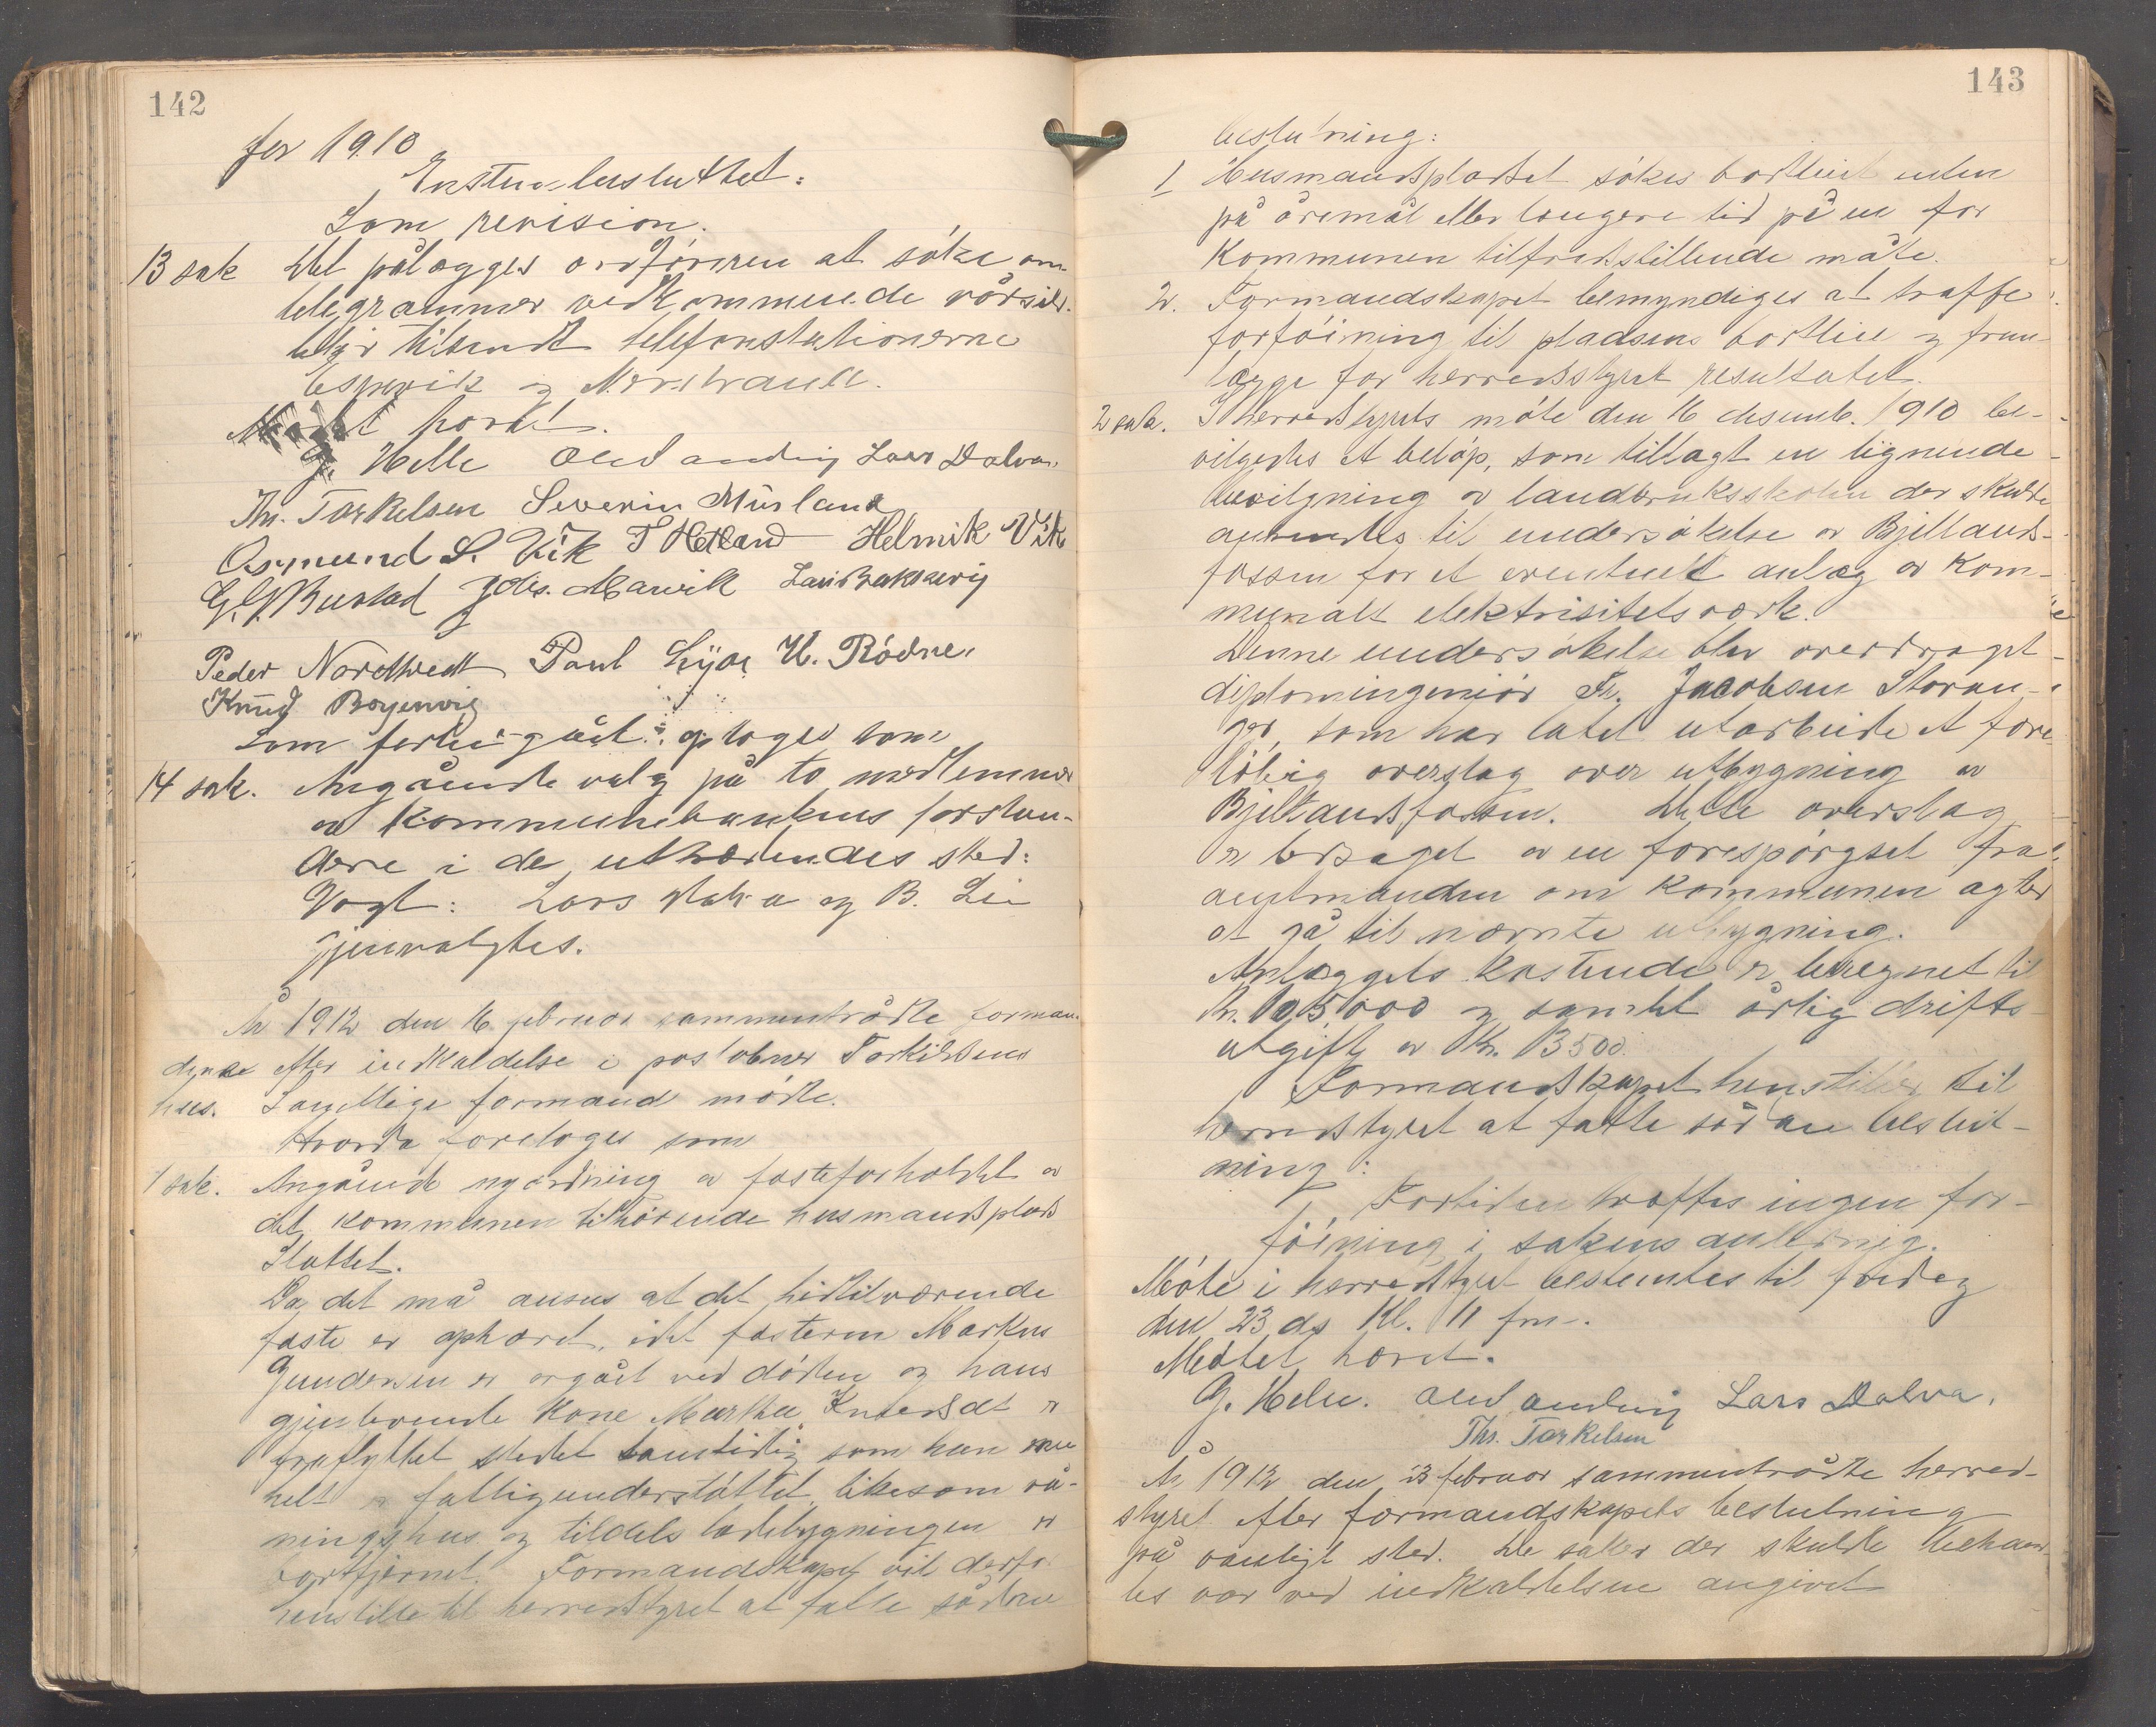 142
for 1910
Enst. besluttet:
Som revision.
13 sak Det pålægges ordföreren at söke om
telegrammer vedkommende vårsild.
blir tilsendt telefonstationerne
Espevik og Nerstrand.
Mötet hævet.
G. Helle Lars Dalva.
Ths. Torkelsen Severin
Osmund S. Vik T Hetland Helmik Vik
Johs. Marvik
Peder Nordtvedt Paul H. Rödne.
Knud
Som foregået: optoges som
14 sak. Angående valg på to medlemmer
av kommunebankens forstan-
dere i de uttrædendes sted:
Valgt: Lars og B. Lie
gjenvalgtes.
År 1912 den 16 februar sammentrådte forman-
dene efter indkaldelse i postobner Torkildsens
hus. Samtlige formænd mödte.
Hvorda foretoges som
1 sak. Angående nyordning av fæsteforholdet av
det kommunen tilhörende husmandsplads
Slottet.
Da det må anses at det hidtilværende
fæste er ophœrt, idet fæsteren Markus
Gundersen er avgået ved döden og hans
gjenlevende kone Martha Knutsdt er
fraflyttet stedet samtidig som hun nu
helt er fattigunderstöttet, likesom vå-
ningshus og tildels ladebygningen er
bortfjernet. Formandskapet vil derfor
henstille til herredstyret at fatte sådan
143
beslutning:
1 Husmandspladset sökes bortleiet enten
på åremål eller længere tid på en for
kommunen tilfredsstillende måte.
2. Formandskapet bemyndiges at træffe
forföining til pladsens bortleie og frem-
lægge for herredsstyret resultatet.
2 sak. I herredstyrets möte den 16 desemb. 1910 be-
vilgedes et belöp, som tillagt en lignende
bevilgning av landbruksskolen der skulde
anvendes til undersökelse av Bjellands-
fossen for et eventuelt anlæg av kom-
munalt elektrisitetsværk.
Denne undersökelse blev overdraget
diplomingeniör Fr. Jacobsen Stavan-
ger, som har latet utarbeide et fore-
löbig overslag over utbygning av
Bjellandsfossen. Dette overslag
er ledsaget av en forespörgsel fra
amtmanden om kommunen agter
at gå til nævnte utbygning.
Anlæggets kostende er beregnet til
Kr. 105,000 og samlet årlig drifts-
utgift av Kr. 13500.
Formandskapet henstiller til
herredstyret at fatte sådan beslut-
ning:
Fortiden træffes ingen for-
föining i sakens anledning.
Möte i herredstyret bestemtes til fredag
den 23 ds Kl. 11 fm.
Mötet hævet.
G. Helle. Lars Dalva.
Ths. Torkelsen
År 1912 den 23 februar sammentrådte herred-
styret efter formandskapets beslutning
på vanligt sted. De saker der skulde behand-
les var ved indkaldelsen angivet